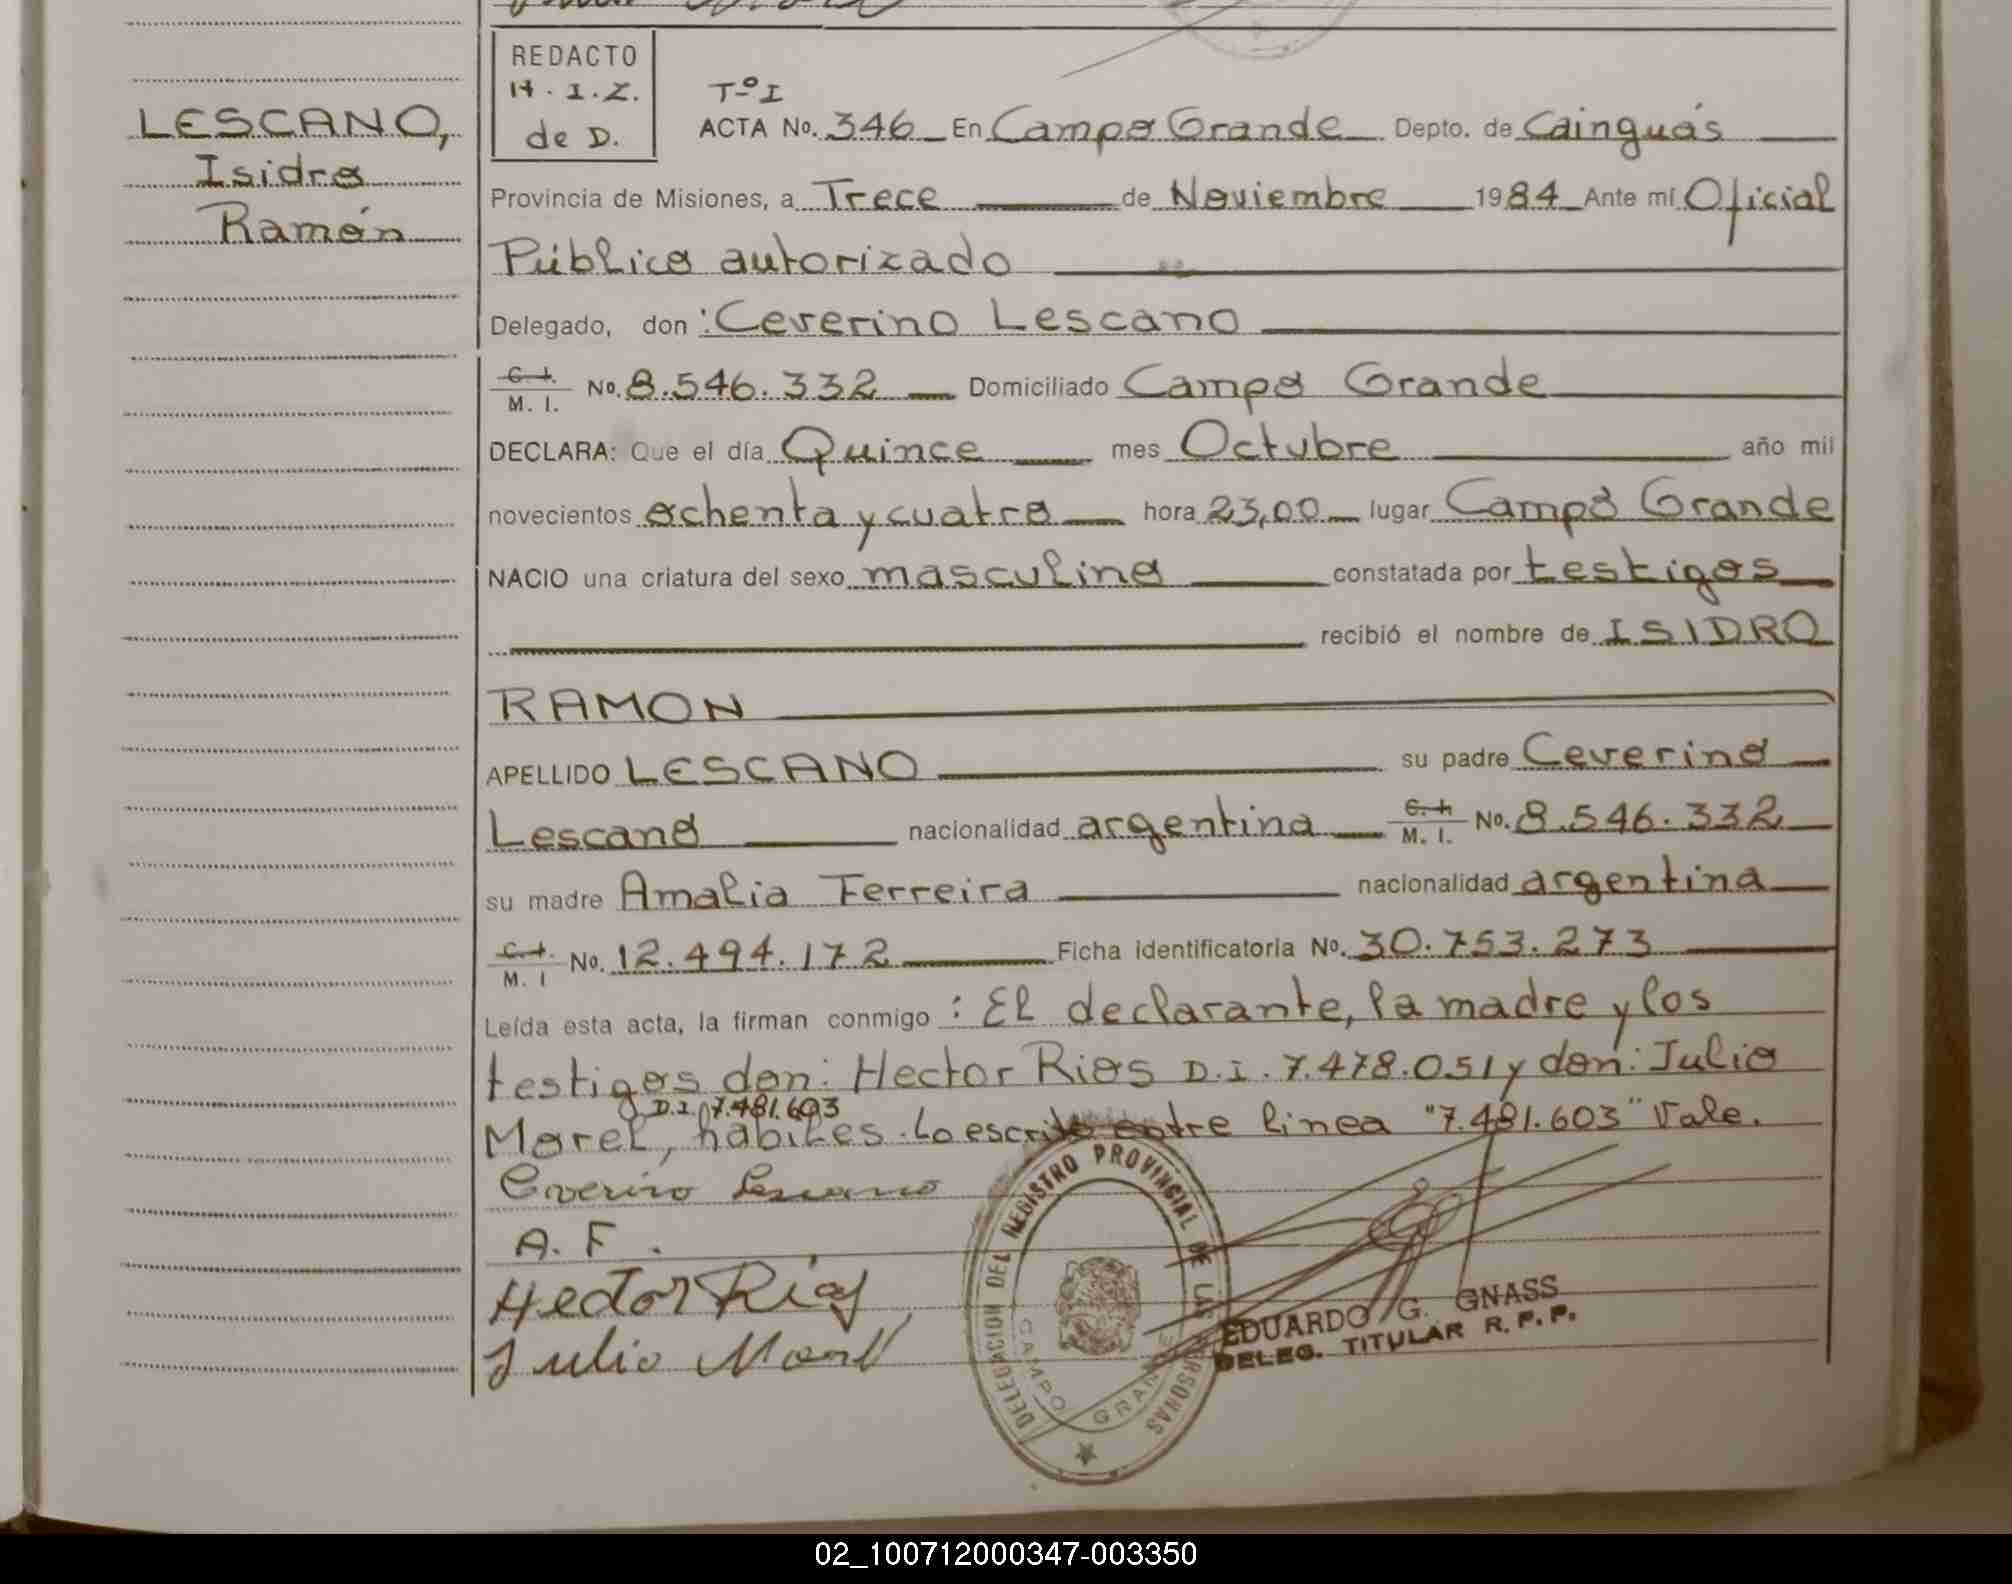 REDACTO
H. I. Z.
de D.
LESCANO,
Isidro
Ramón
Tº I
ACTA No. 346 En Campo Grande Depto. de Cainguás
Provincia de Misiones, a Trece de Noviembre 1984 Ante mí Oficial
Público autorizado
Delegado, don : Ceverino Lescano
C. I. M. I. No. 8.546.332 Domiciliado Campo Grande
DECLARA: Que el día Quince mes Octubre año mil
novecientos ochenta y cuatro hora 23,00 lugar Campo Grande
NACIO una criatura del sexo masculino constatada por testigos
recibió el nombre de ISIDRO
RAMON
APELLIDO LESCANO su padre Ceverino
Lescano nacionalidad argentina C. I. M. I. No. 8.546.332
su madre Amalia Ferreira nacionalidad argentina
C. I. M. I No. 12.494.172 Ficha identificatoria No. 30.753.273
Leída esta acta, la firman conmigo : El declarante, la madre y los
testigos don: Hector Rios D.I. 7.478.051 y don: Julio
D.I. 7.481.603
Morel, hábiles. Lo escrito entre linea "7.481.603" Vale.
Ceverino Lescano
A. F.
Hector Ríos
Julio Morel
DELEGACION DEL REGISTRO PROVINCIAL DE LAS PERSONAS
CAMPO GRANDE
EDUARDO G. GNASS
DELEG. TITULAR R. P. P.
02_100712000347-003350